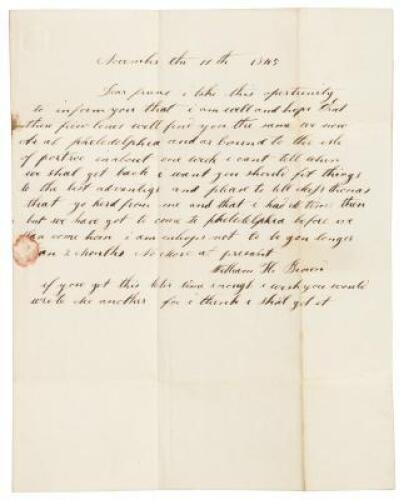 November the 11th 1845
Dear friend i take this opertunity
to inform you that i am well and hope that
these few lines will find you the same we now
at philedelphia and as bound to the ile
of in about one week i cant tell when
we shal get back i want you should fit things
to the best advantige and please to tell thomas
that yo herd from me and that i
but we have got to come to philedelphia before we
can come hom i am in hopes not to be gon longer
an 2 months No more at present
William H. Brown
if you get this leter time enough i wish you would
write me another for i think i shal get it